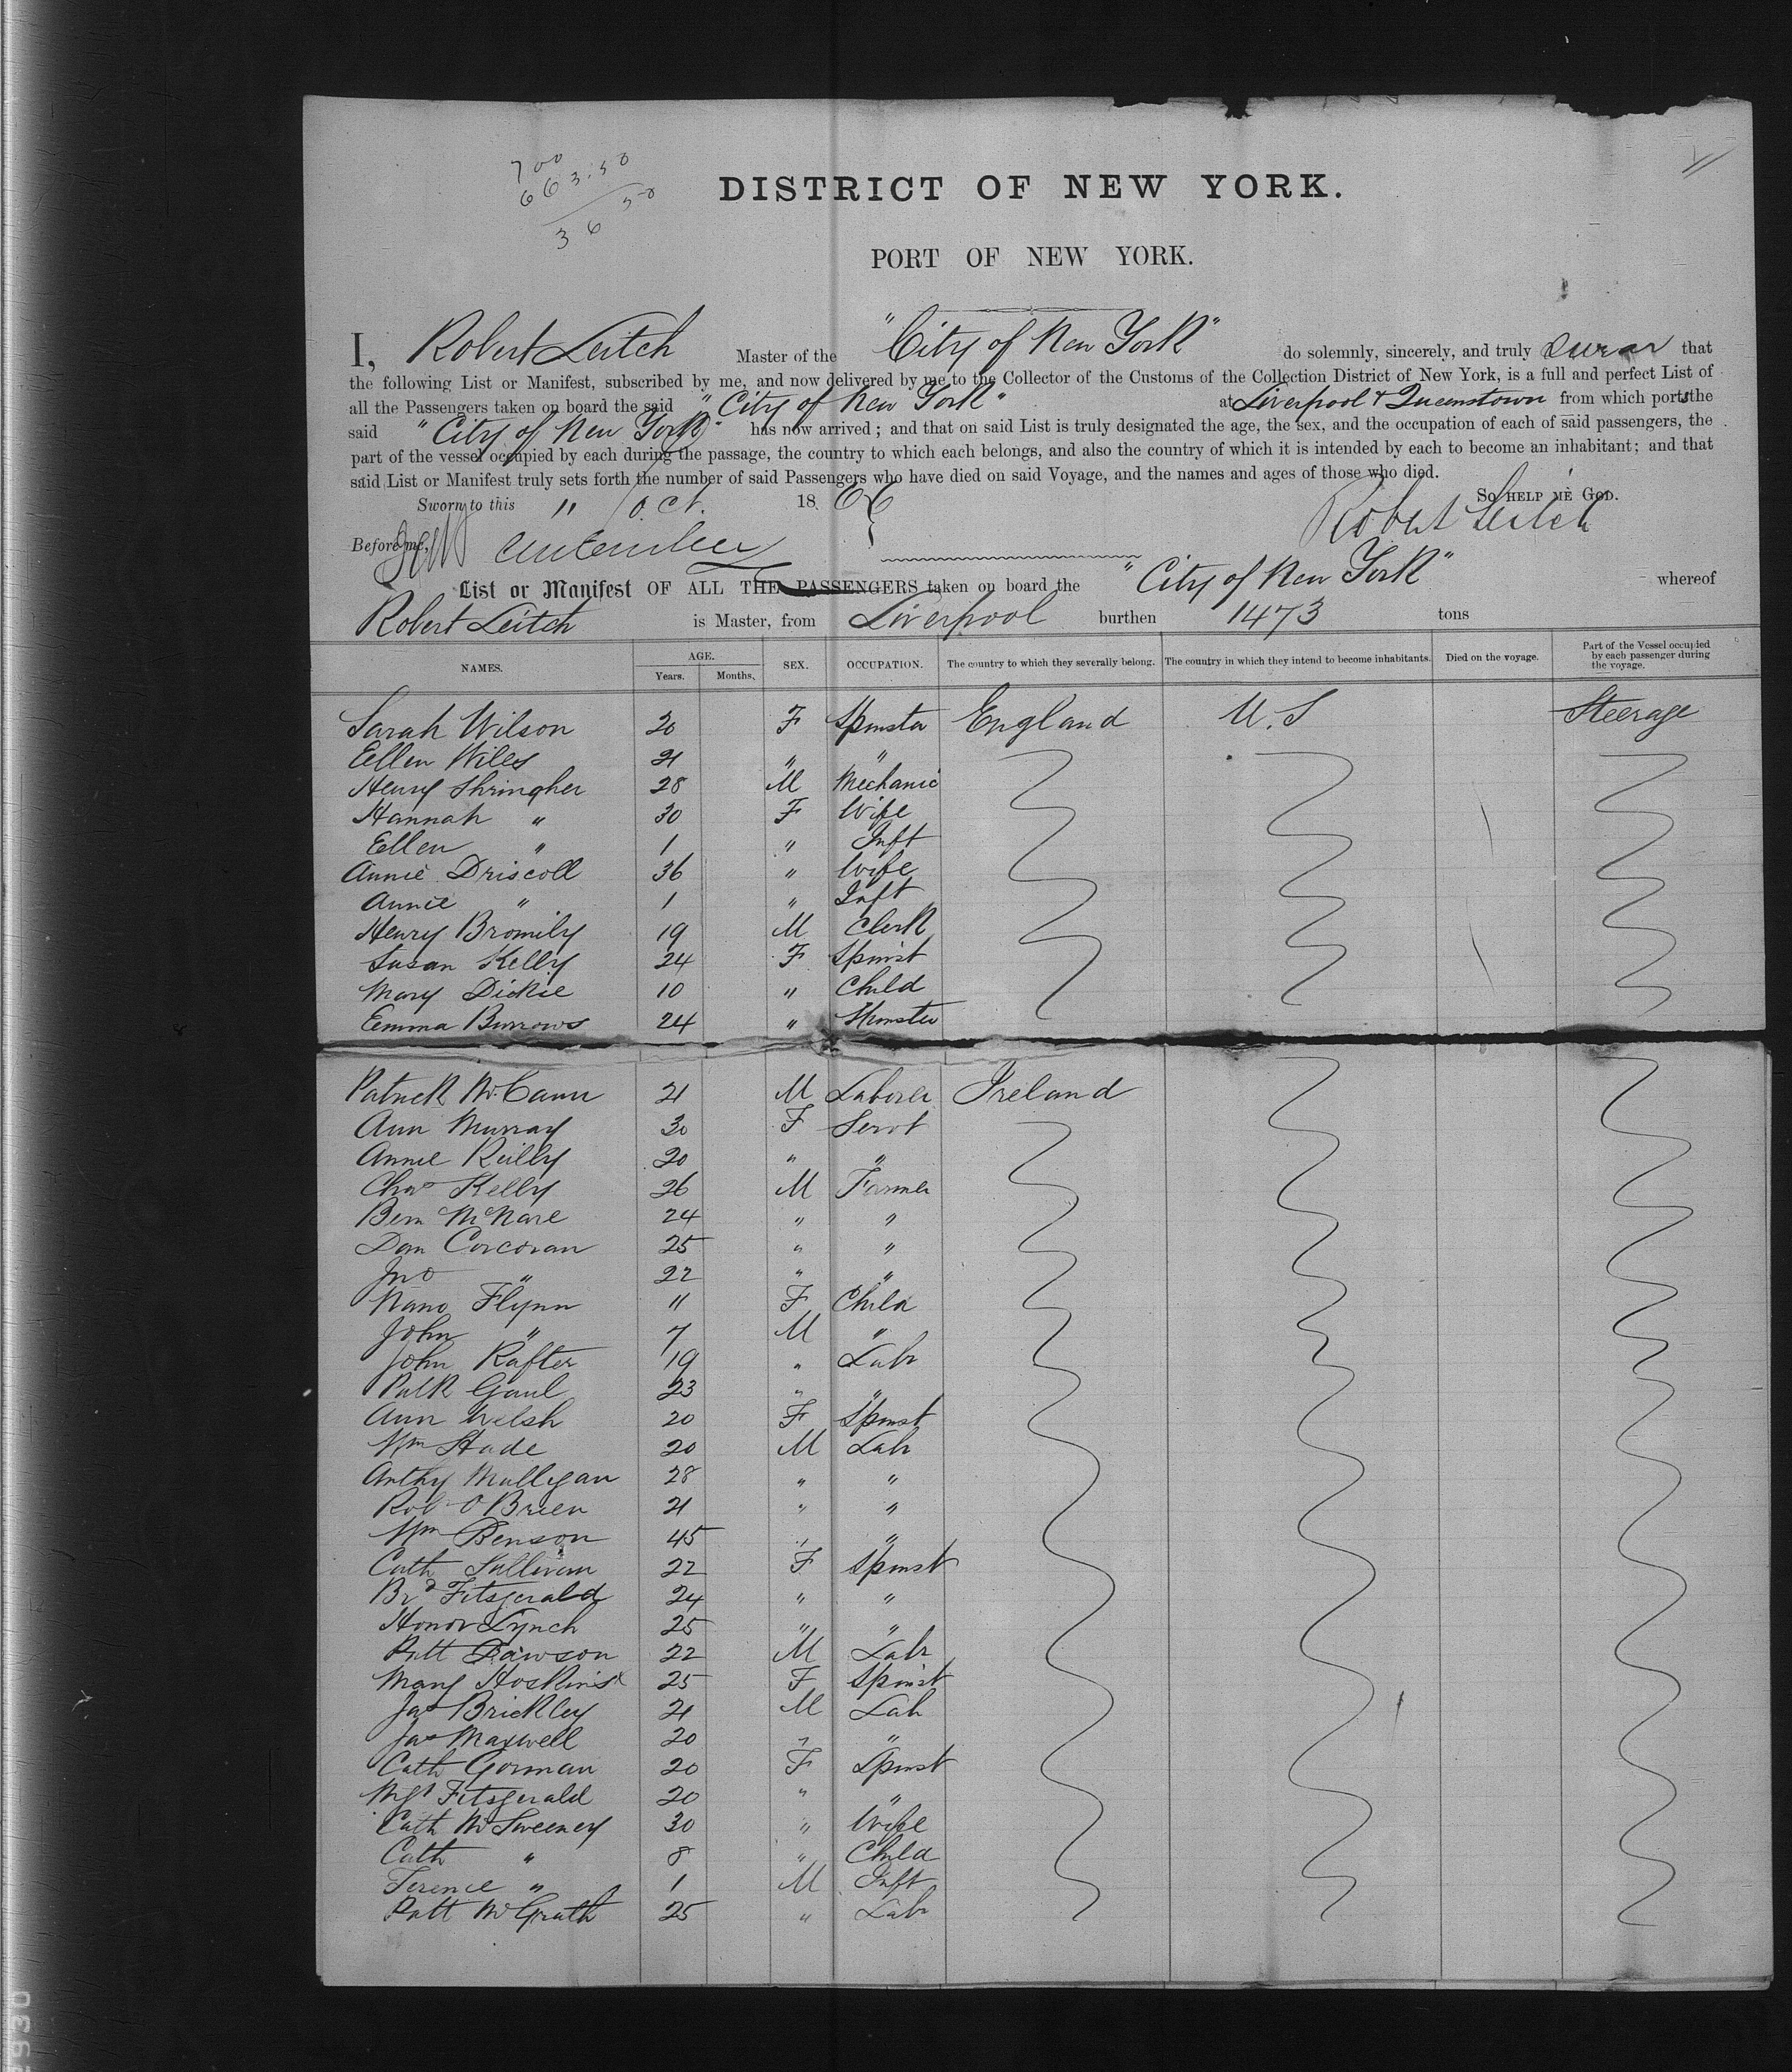 700
663.50
36 50
DISTRICT OF NEW YORK.
PORT OF NEW YORK.
I, Robert Leitch Master of the "City of New York" do solemnly, sincerely, and truly swear that
the following List or Manifest, subscribed by me, and now delivered by me to the Collector of the Customs of the Collection District of New York, is a full and perfect List of
all the Passengers taken on board the said "City of New York" at Liverpool & Queenstown from which ports the
said "City of New York" has now arrived; and that on said List is truly designated the age, the sex, and the occupation of each of said passengers, the
part of the vessel occupied by each during the passage, the country to which each belongs, and also the country of which it is intended by each to become an inhabitant; and that
said List or Manifest truly sets forth the number of said Passengers who have died on said Voyage, and the names and ages of those who died.
So help me God.
Sworn to this 11 Oct. 1866 Robert Leitch
Before me,
List or Manifest OF ALL THE PASSENGERS taken on board the "City of New York" whereof
Robert Leitch is Master, from Liverpool burthen 1473 tons
NAMES. AGE. Years. Months, SEX. OCCUPATION. The country to which they severally belong. The country in which they intend to become inhabitants. Died on the voyage. Part of the Vessel occupied by each passenger during the voyage.
Sarah Wilson 20 F Spinster England U.S Steerage
Ellen Wiles 21 " "
Henry Shringher 28 M Mechanic
Hannah " 30 F Wife
Ellen " 1 " Inft
Annie Driscoll 36 " Wife
Annie " 1 " Inft
Henry Bromily 19 M Clerk
Susan Kelly 24 F Spinst
Mary Dickie 10 " Child
Emma Burrows 24 " Spinster
Patrick McCann 21 M Laborer Ireland
Ann Murray 30 F Servt
Annie Reilly 20 " "
Chas Kelly 26 M Farmer
Bern McNare 24 " "
Dan Corcoran 25 " "
Jno " 22 " "
Nano Flynn 11 F Child
John " 7 M "
John Rafter 19 " Labr
Patk Gaul 23 " "
Ann Welsh 20 F Spinst
Wm Hade 20 M Labr
Anthy Mulligan 28 " "
Rob O'Brien 21 " "
Wm Benson 45 " "
Cath Sullivan 22 F Spinst
Brd Fitsgerald 24 " "
Honor Lynch 25 " "
Patt Dawson 22 M Labr
Mary Hoskins 25 F Spinst
Jas Brickley 21 M Lab
Jas Maxwell 20 " "
Cath Gorman 20 F Spinst
Mgt Fitsgerald 20 " "
Cath McSweeney 30 " Wife
Cath " 8 " Child
Terence " 1 M Inft
Patt McGrath 25 " Labr